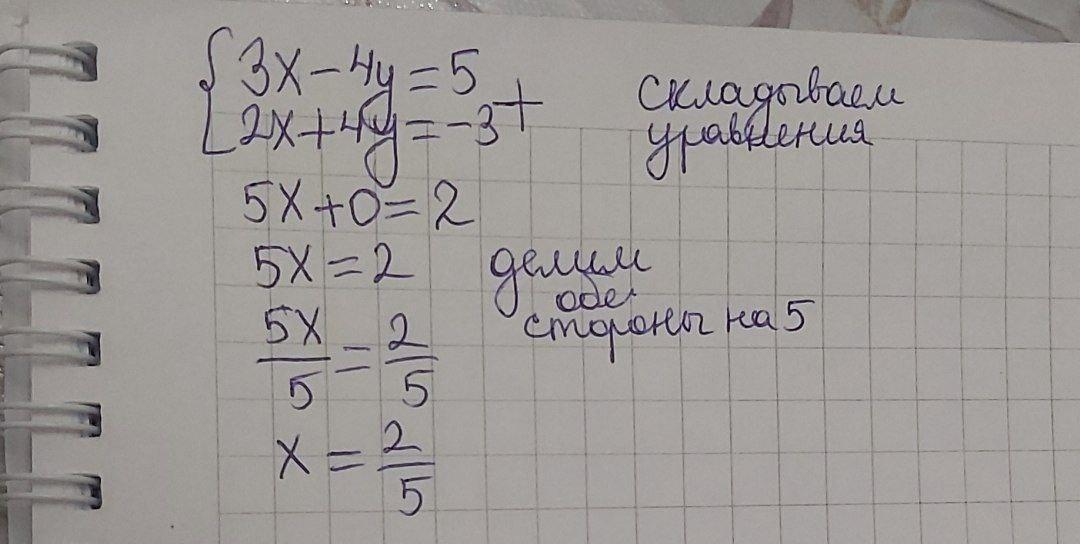 3x-4y=5
2x+4y=-3 +
складываем
уравнения
5x+0=2
5x=2 делим
обе
стороны на 5
5x/5=2/5
x=2/5